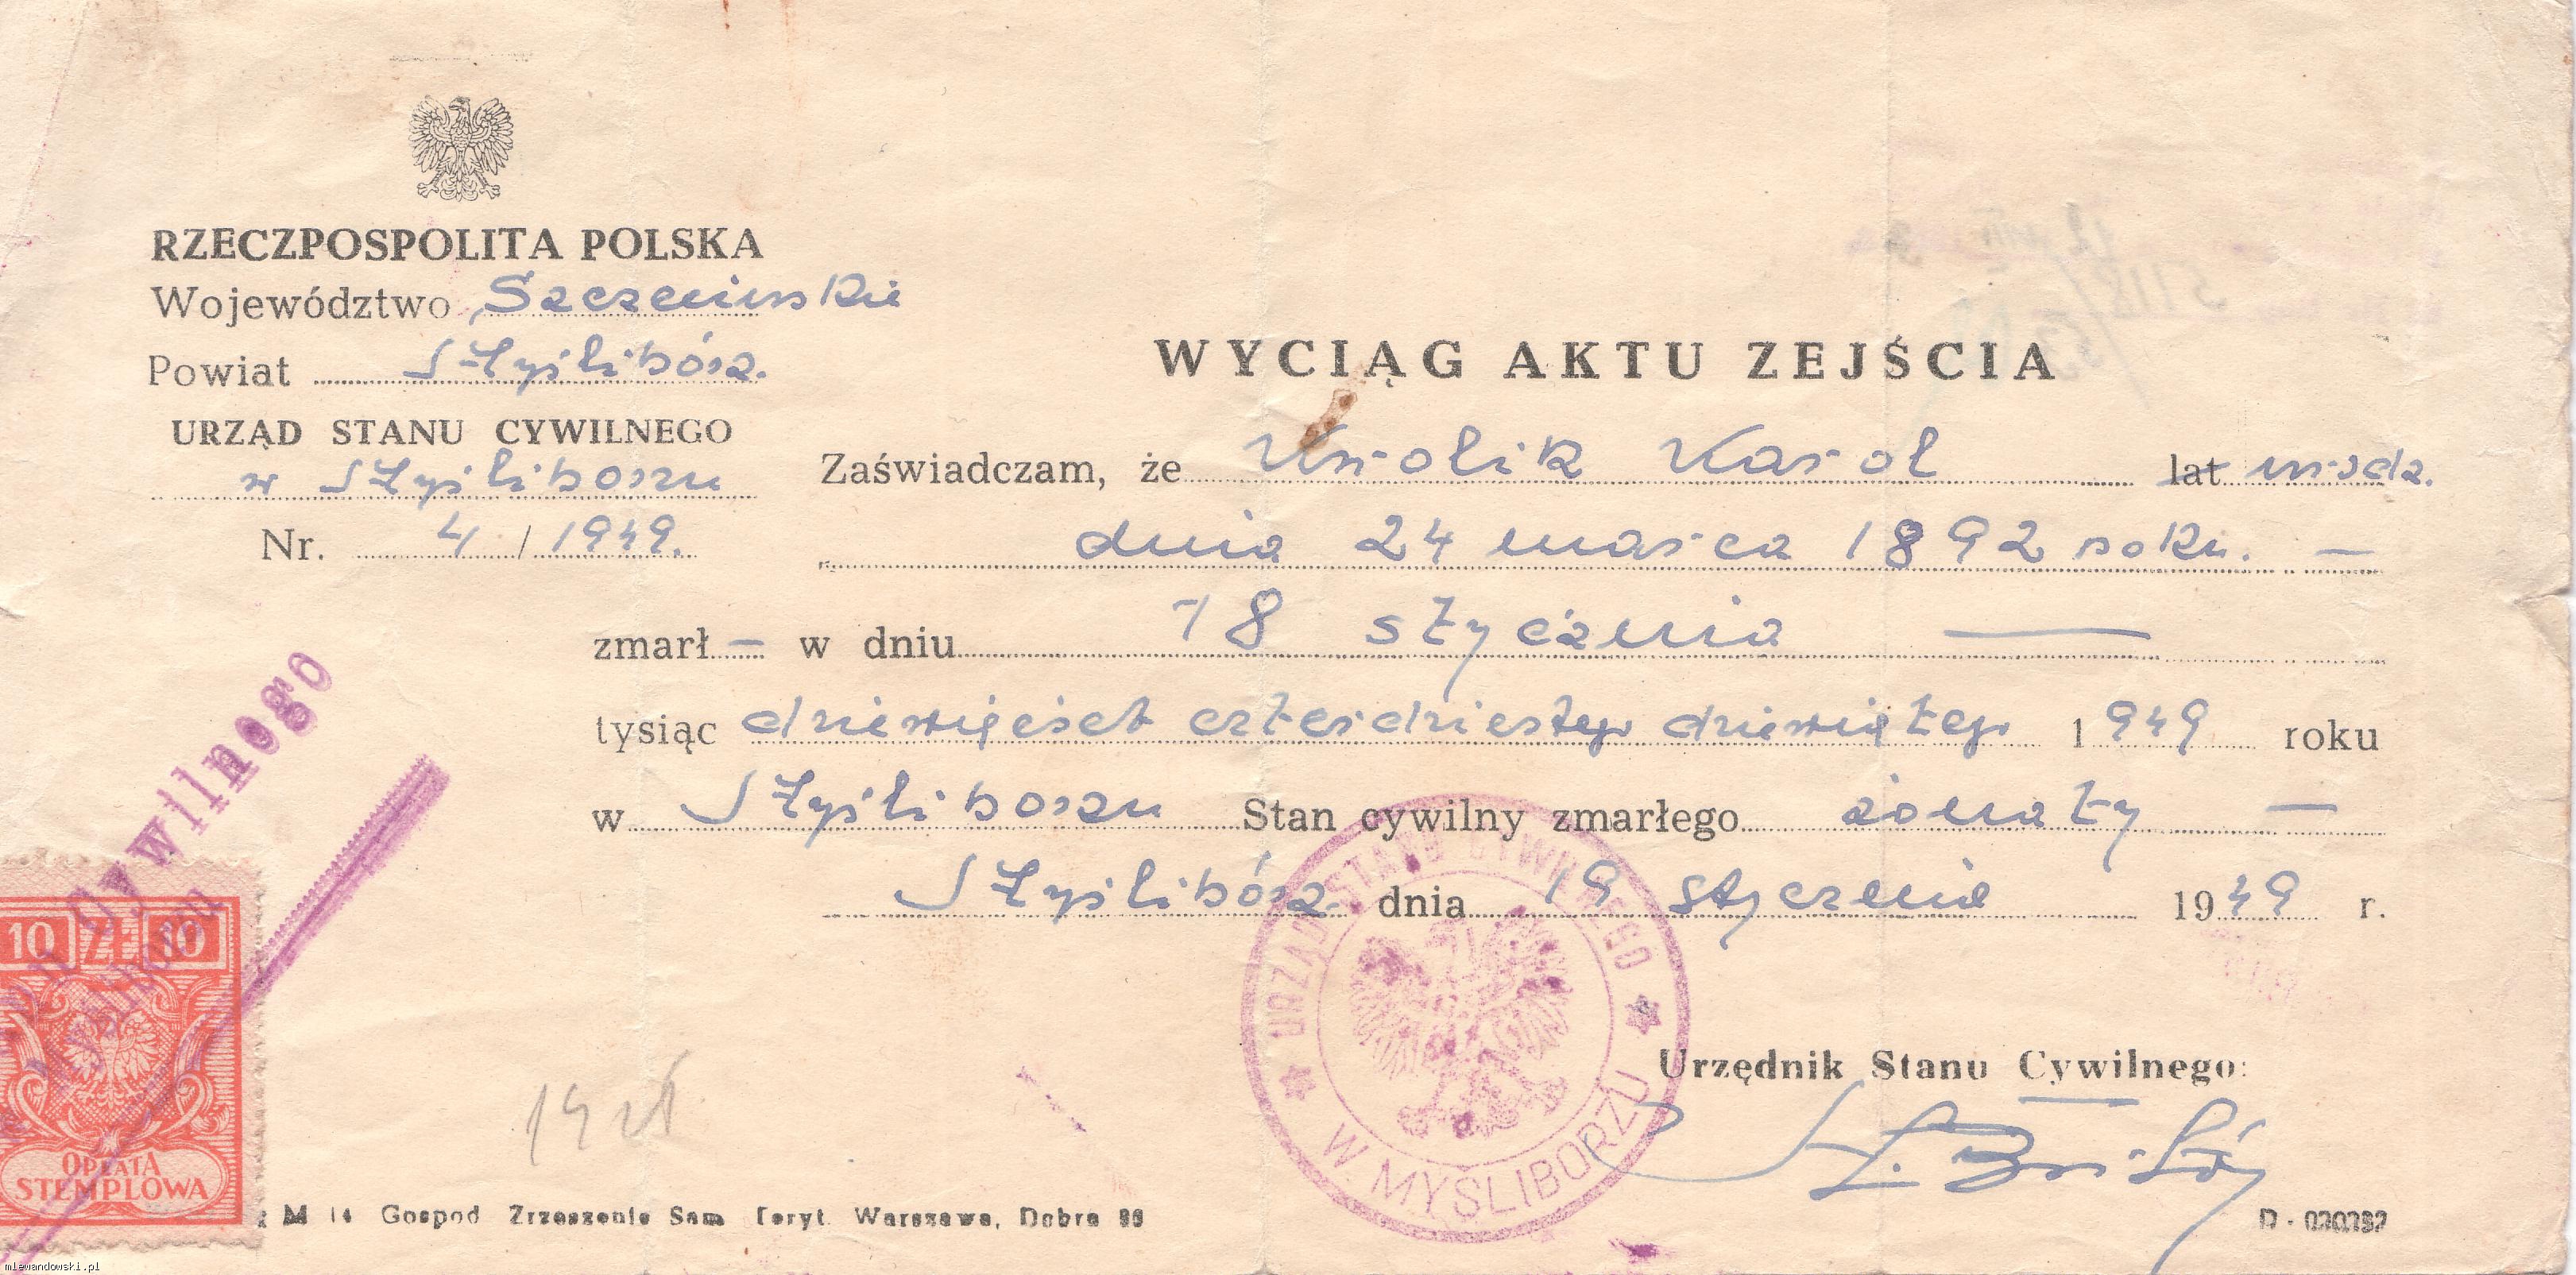 RZECZPOSPOLITA POLSKA
Województwo Szczecińskie
Powiat Myślibórz.
URZĄD STANU CYWILNEGO
w Myśliborzu
Nr. 4 / 1949.
WYCIĄG AKTU ZEJŚCIA
Zaświadczam, że Królik Karol lat urodz.
dnia 24 marca 1892 roku. —
zmarł — w dniu 18 stycznia —
tysiąc dziewięćset czterdziestego dziewiątego 1949 roku
w Myśliborzu Stan cywilny zmarłego żonaty —
Myślibórz. dnia 19 stycznia 1949 r.
URZĄD STANU CYWILNEGO
W MYŚLIBORZU
Urzędnik Stanu Cywilnego:
Cywilnego
10 ZŁ 10
OPŁATA
STEMPLOWA
14 zł
M 14 Gospod Zrzeszenie Sam Teryt. Warszawa, Dobra
D - 020282
mlewandowski.pl